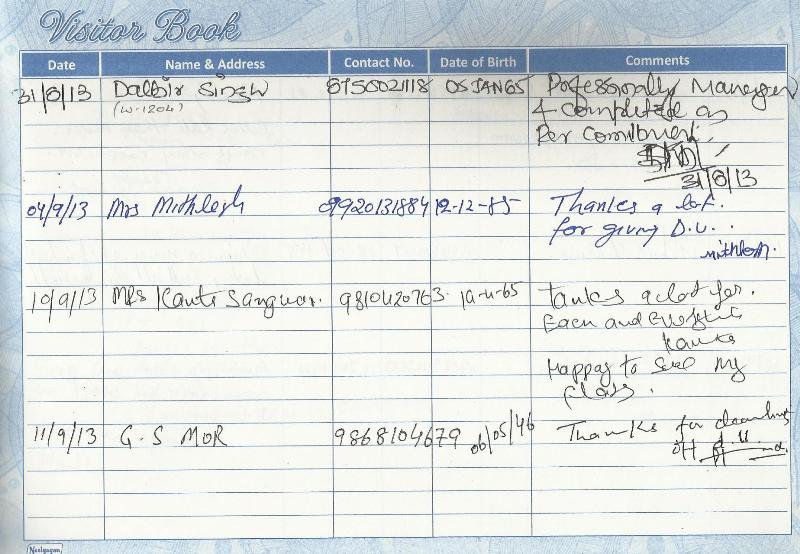 Visitor Book
Date Name & Address Contact No. Date of Birth Comments
31/8/13 Dalbir Singh 8750021118 05JAN65 Professionally Manager
(W-1204) & completed as
Per Commitment.
31/8/13
04/9/13 Mrs Mithlesh 09920131884 12-12-85 Thanks a lot.
for giving D.U..
Mithlesh.
10/9/13 MRS Kanta Sangwan. 9810420763. tanks a lot for.
Each and Everythi
Kanta
Happay to see my
flats.
11/9/13 G.S MOR 9868104679 06/05/46 Thanks for
off
Neelgagan